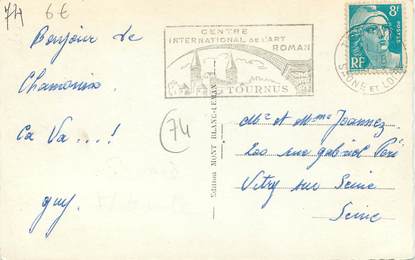 74 6€
Bonjour de
Chamonix.
Ca Va....!
guy.
CENTRE
INTERNATIONAL DE L'ART
ROMAN
TOURNUS
8F
POSTES
RF
SAONE ET LOIRE
74
Edition MONT BLANC-LEMAN
Mr et Mme Joannez
200 rue gabriel Péri
Vitry sur Seine
Seine